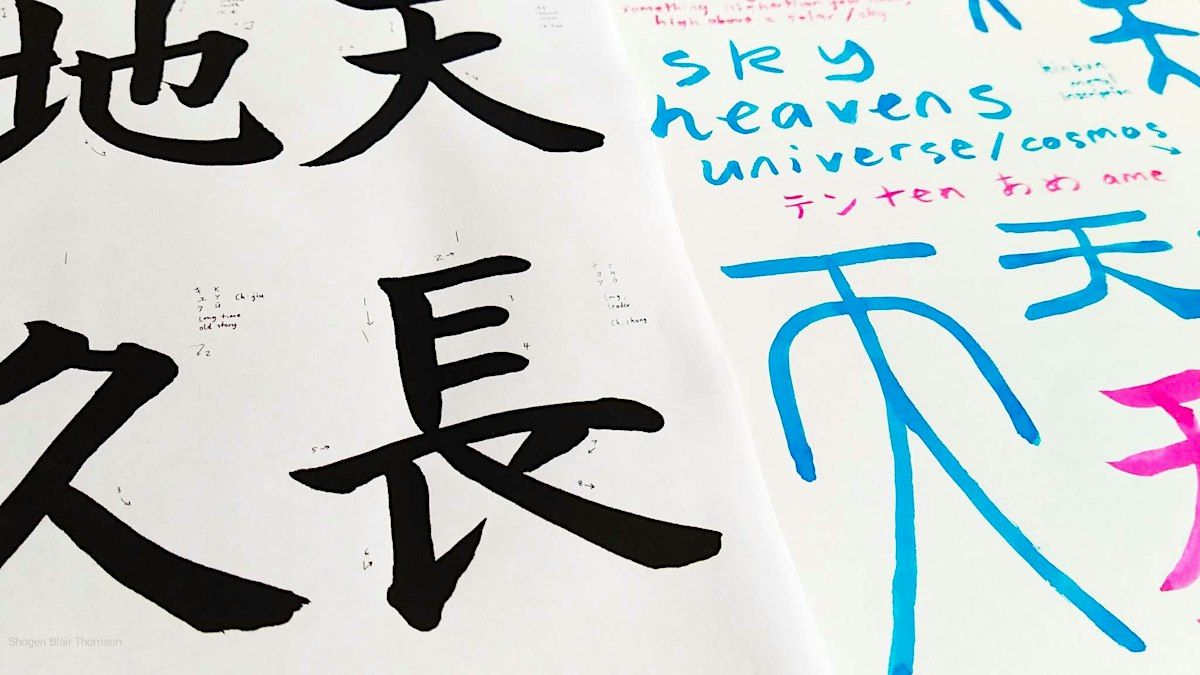 天地
長久
キョウ
KYŪ
Ch: jiu
Long time
old story
チョウ
CHŌ
Long,
leader
Ch: chang
1
2
3
4
5
6
7
8
something higher than
high above = solar / sky
sky
heavens
universe / cosmos
テン ten あめ ame
kinbun
metal
inscription
天
天
Shogen Blair Thomson